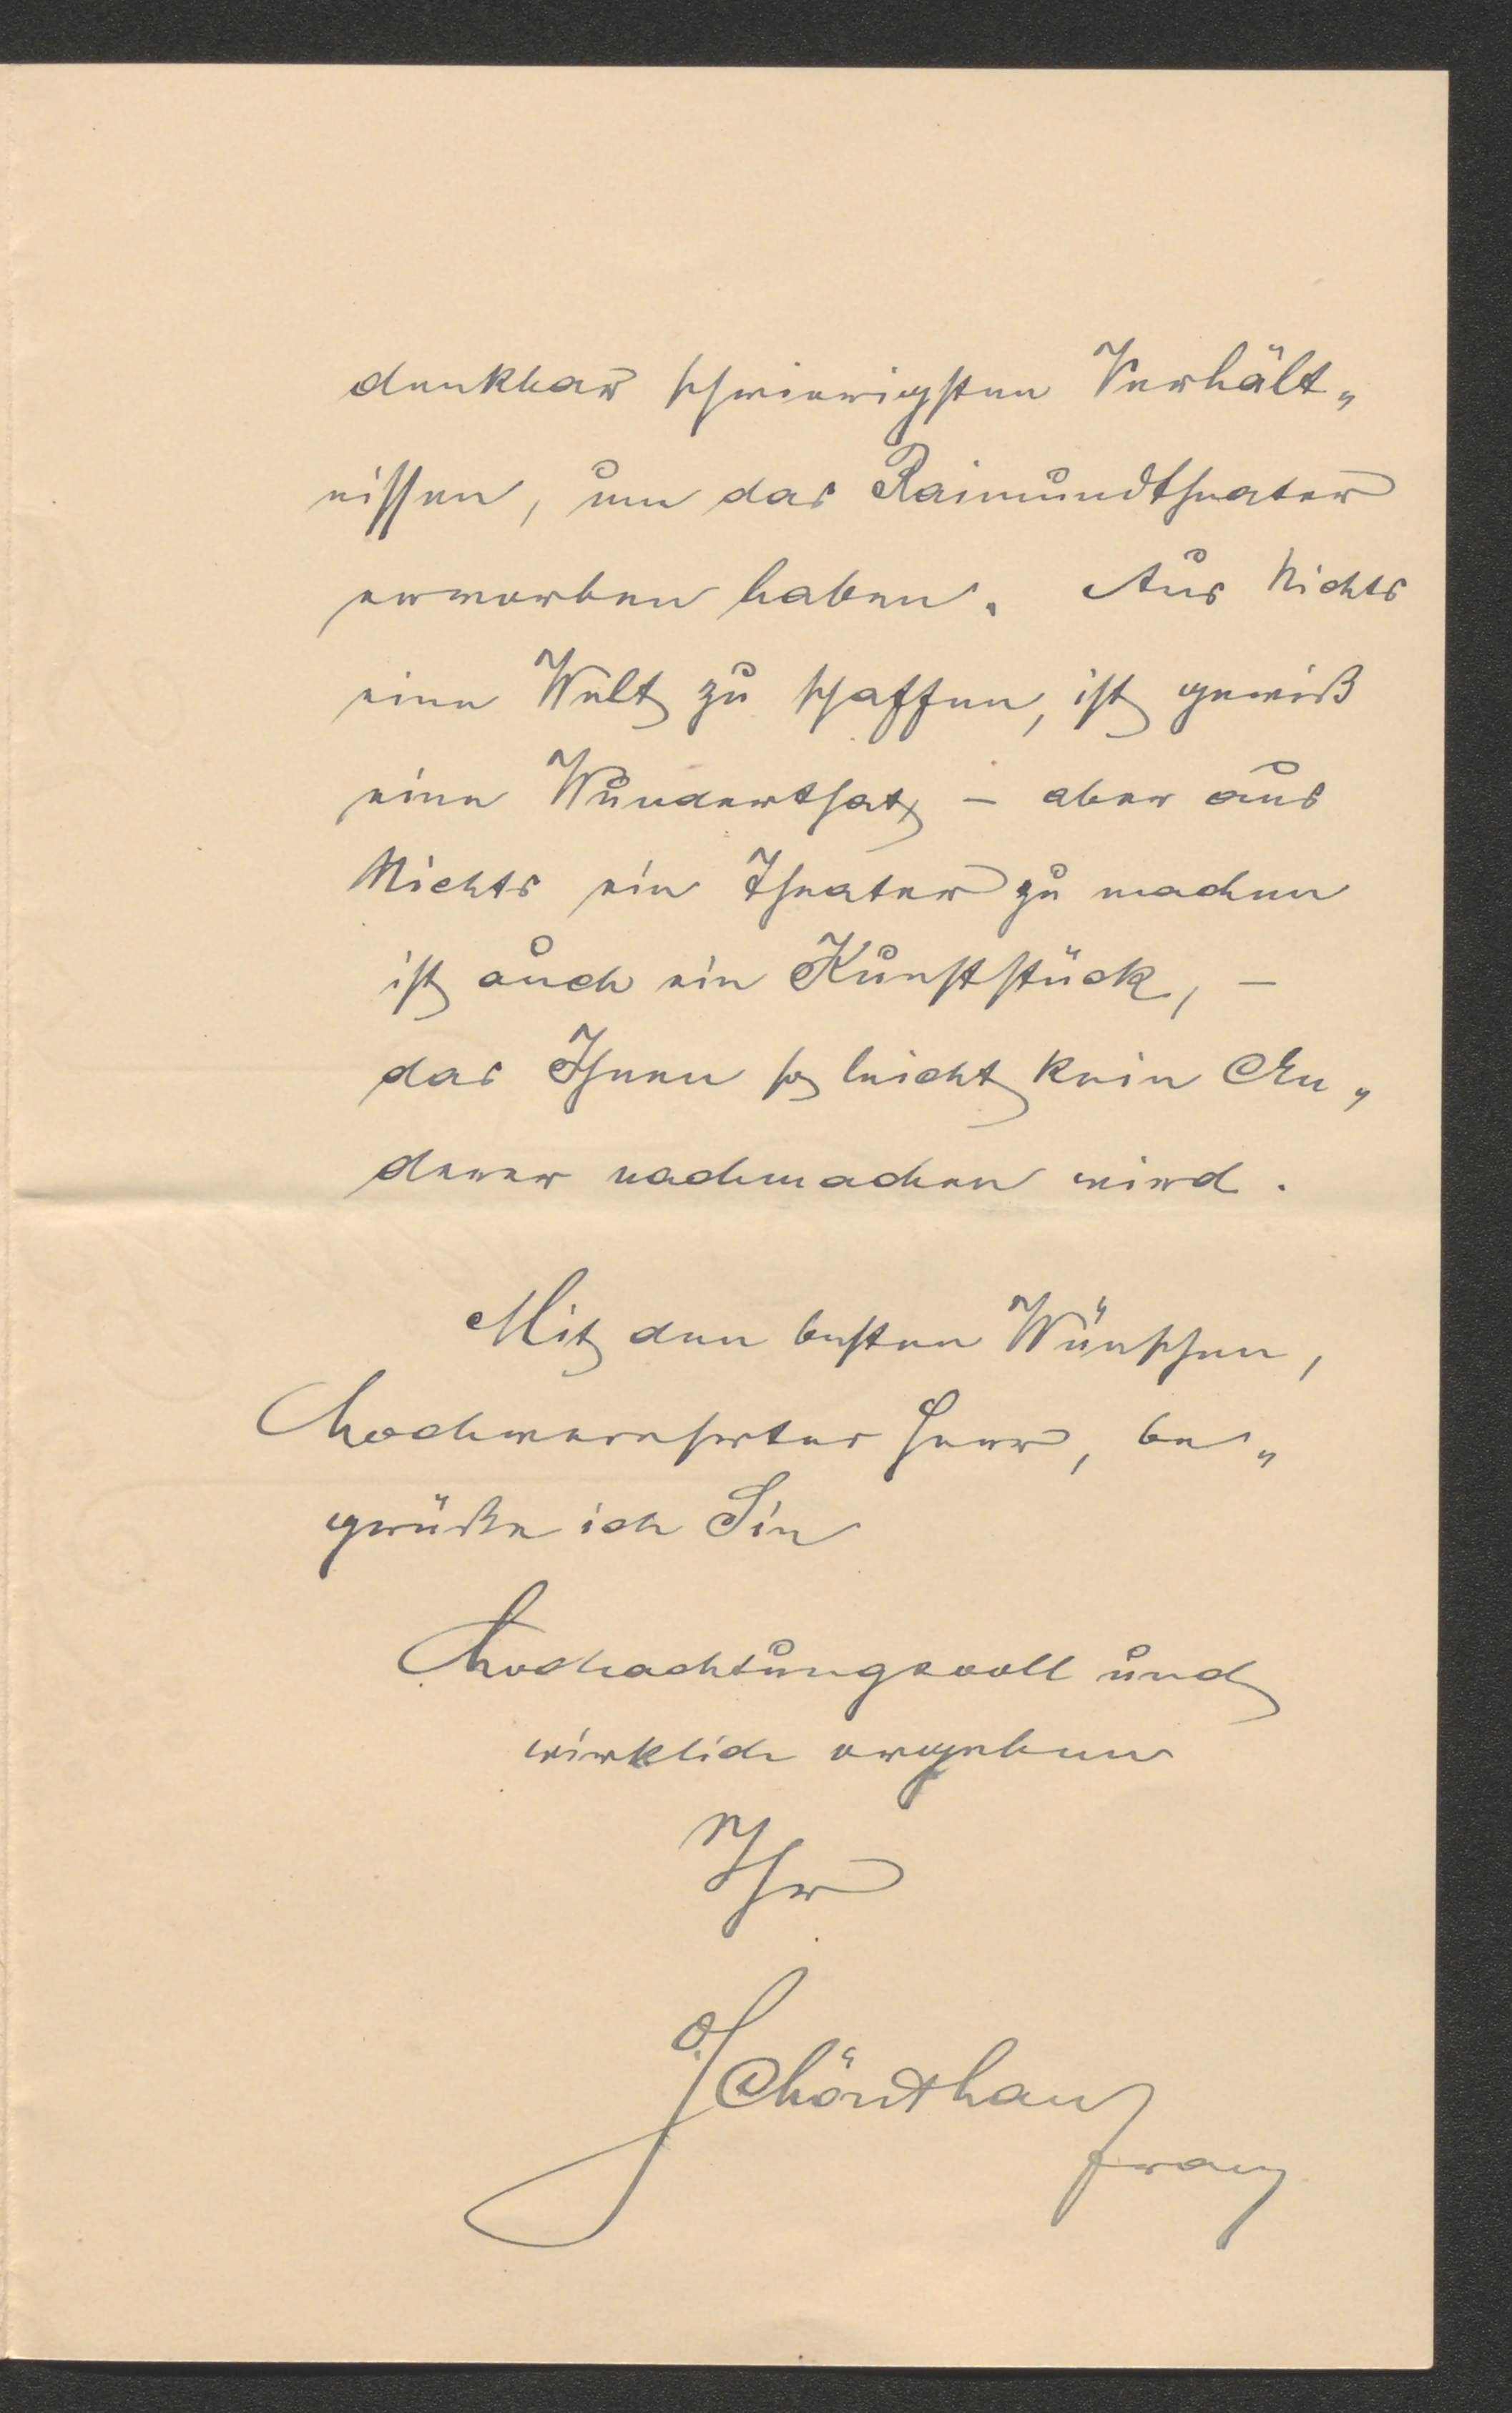 denkbar schwierigsten Verhält„
nissen, um das Raimundtheater
erworben haben. Aus Nichts
eine Welt zu schaffen, ist gewiß
eine Wunderthat – aber aus
Nichts ein Theater zu machen
ist auch ein Kunststück, –
das Ihnen so leicht kein An„
derer nachmachen wird.
Mit den besten Wünschen,
hochverehrter Herr, be„
grüße ich Sie
hochachtungsvoll und
wirklich ergeben
Ihr
Schönthan
Franz